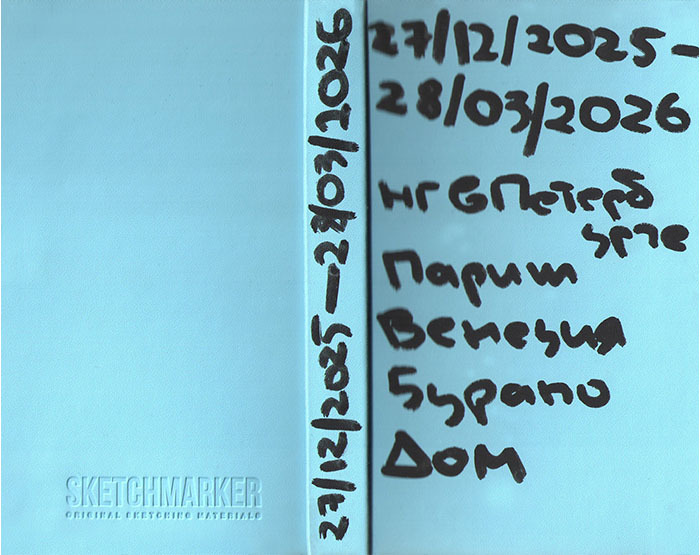 SKETCHMARKER
ORIGINAL SKETCHING MATERIALS
27/12/2025—28/03/2026
27/12/2025—
28/03/2026
НГ в Петерб
урге
Париж
Венеция
Бурано
Дом